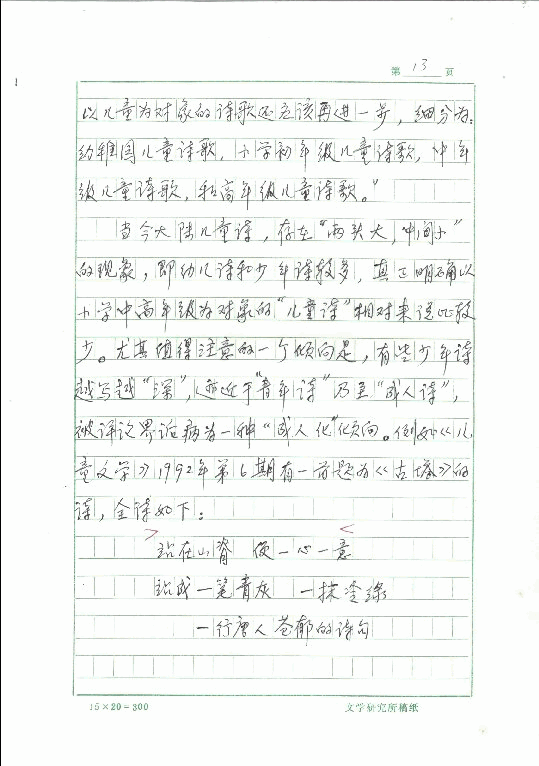 第 13 页
以儿童为对象的诗歌还应该再进一步，细分为：
幼稚园儿童诗歌，小学初年级儿童诗歌，中年
级儿童诗歌，和高年级儿童诗歌。”
当今大陆儿童诗，存在“两头大，中间小”
的现象，即幼儿诗和少年诗较多，真正明确以
小学中高年级为对象的“儿童诗”相对来说比较
少。尤其值得注意的一个倾向是，有些少年诗
越写越“深”，趋近于“青年诗”乃至“成人诗”，
被评论界诟病为一种“成人化”倾向。例如《儿
童文学》1992年第6期有一首题为《古塔》的
诗，全诗如下：
站在山脊 便一心一意
站成一笔青灰 一抹苍绿
一行唐人苍郁的诗句
15×20=300 文学研究所稿纸